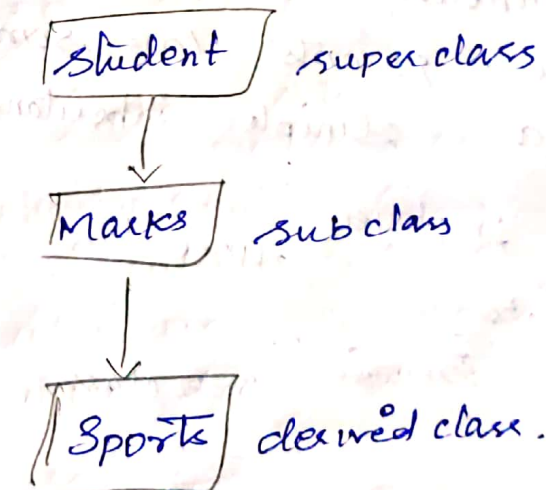 student super class
Marks sub class
Sports derived class.